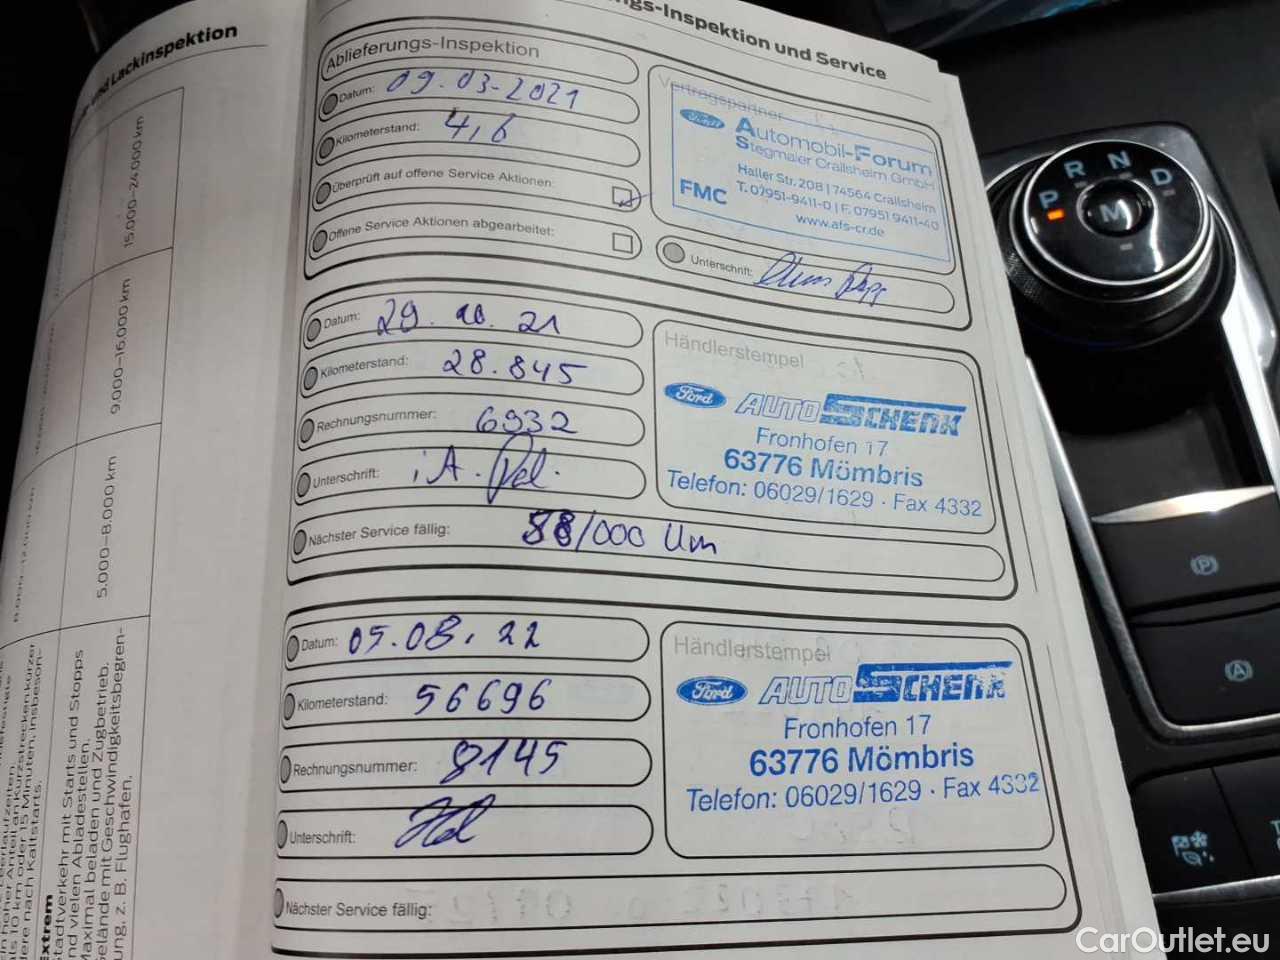 und Lackinspektion
15.000–24.000 km
9.000–16.000 km
5.000–8.000 km
als 10 km oder 15 Minuten, insbeson-
dere nach Kaltstarts.
Extrem
Stadtverkehr mit Starts und Stopps
und vielen Abladestellen.
Maximal beladen und Zugbetrieb.
Gelände mit Geschwindigkeitsbegren-
ung, z. B. Flughafen.
ngs-Inspektion und Service
Ablieferungs-Inspektion
Datum: 09.03-2021
Kilometerstand: 4,6
Überprüft auf offene Service Aktionen:
Offene Service Aktionen abgearbeitet:
Vertragspartner
Ford Automobil-Forum
Stegmaier Crailsheim GmbH
Haller Str. 208 | 74564 Crailsheim
FMC T. 07951-9411-0 | F. 07951 9411-40
www.afs-cr.de
Unterschrift:
Datum: 29.10.21
Kilometerstand: 28.845
Rechnungsnummer: 6932
Unterschrift: i.A.
Nächster Service fällig: 58/000 Um
Händlerstempel
Ford AUTO SCHENK
Fronhofen 17
63776 Mömbris
Telefon: 06029/1629 · Fax 4332
Datum: 05.08.22
Kilometerstand: 56696
Rechnungsnummer: 8145
Unterschrift:
Nächster Service fällig:
Händlerstempel
Ford AUTO SCHENK
Fronhofen 17
63776 Mömbris
Telefon: 06029/1629 · Fax 4332
P R N D
M
(P)
(A)
CarOutlet.eu